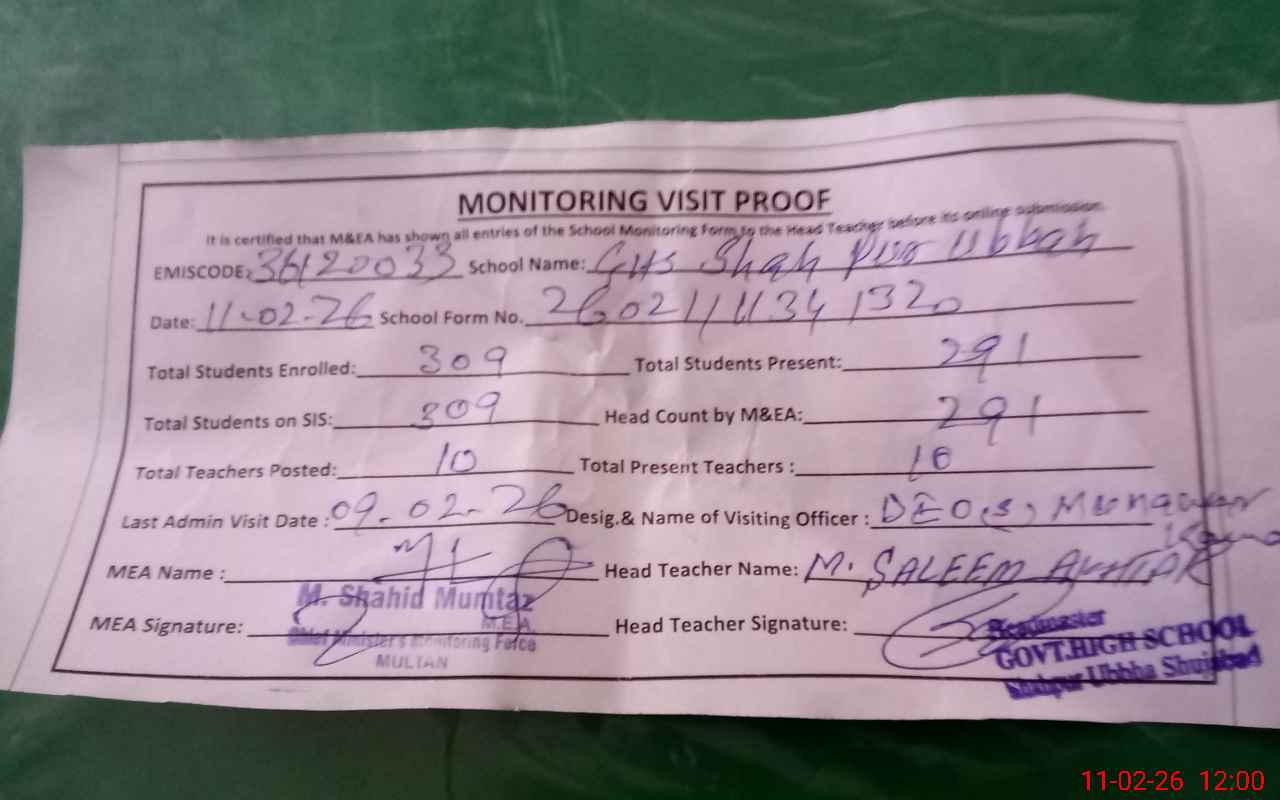 MONITORING VISIT PROOF
It is certified that M&EA has shown all entries of the School Monitoring Form to the Head Teacher before its online submission.
EMISCODE: 36120033 School Name: GHS Shah Pur Ubbah
Date: 11-02-26 School Form No. 26021111341320
Total Students Enrolled: 309 Total Students Present: 291
Total Students on SIS: 309 Head Count by M&EA: 291
Total Teachers Posted: 10 Total Present Teachers : 10
Last Admin Visit Date : 09-02-26 Desig.& Name of Visiting Officer : DEO(S) Munawar
MEA Name : Head Teacher Name: M. SALEEM AKHTAR
M. Shahid Mumtaz
M.E.A.
MEA Signature: Head Teacher Signature:
Chief Minister's Monitoring Force
MULTAN
Headmaster
GOVT.HIGH SCHOOL
Shahpur Ubbha Shujabad
11-02-26 12:00